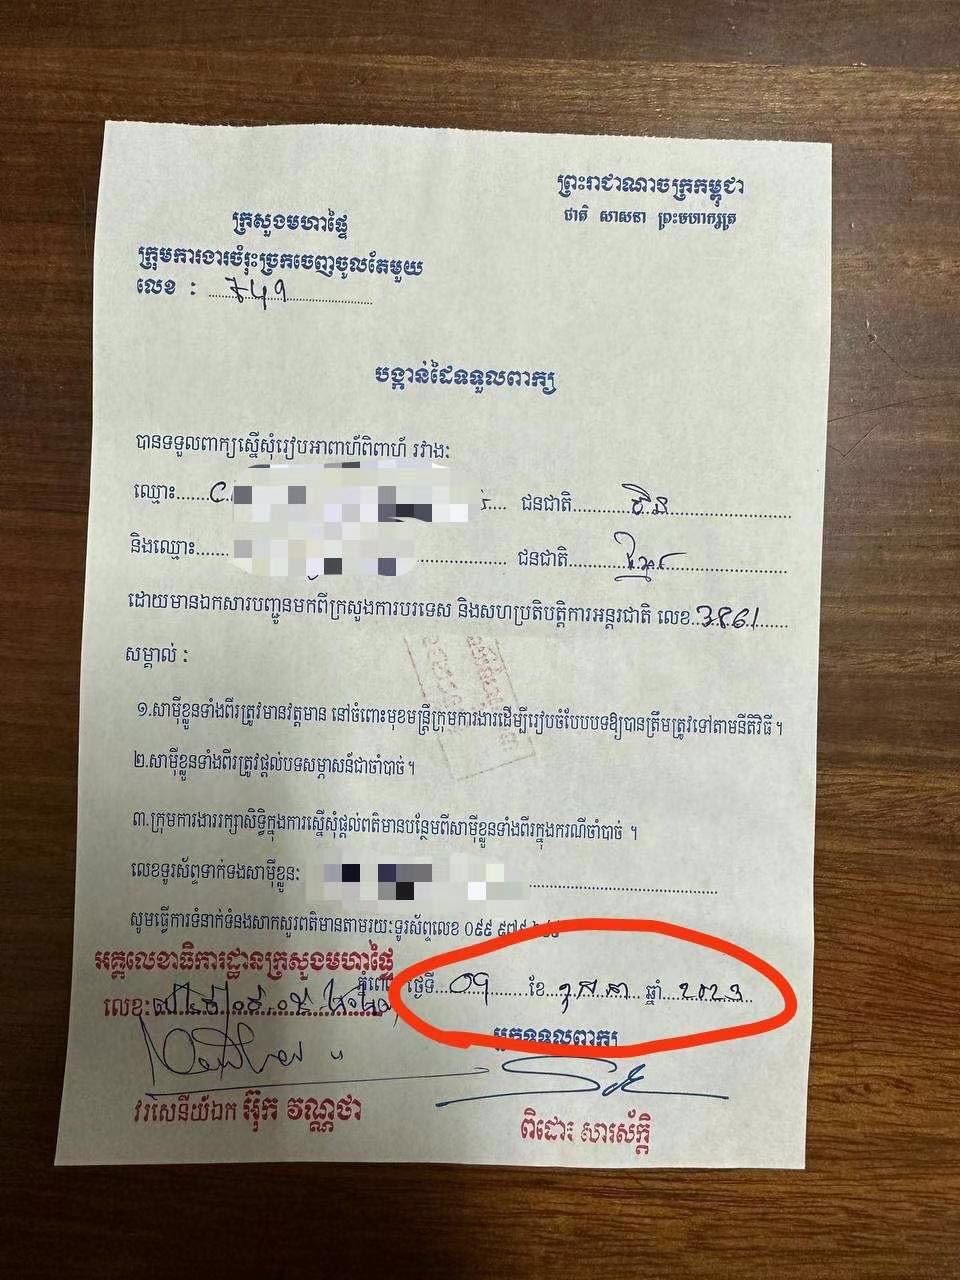 ព្រះរាជាណាចក្រកម្ពុជា
ជាតិ សាសនា ព្រះមហាក្សត្រ
ក្រសួងមហាផ្ទៃ
ក្រុមការងារចំរុះច្រកចេញចូលតែមួយ
លេខ : ៦៤១
បង្កាន់ដៃទទួលពាក្យ
បានទទួលពាក្យស្នើសុំរៀបអាពាហ៍ពិពាហ៍ រវាង:
ឈ្មោះ...... ជនជាតិ......ចិន
និងឈ្មោះ...... ជនជាតិ......ខ្មែរ
ដោយមានឯកសារបញ្ជូនមកពីក្រសួងការបរទេស និងសហប្រតិបត្តិការអន្តរជាតិ លេខ..3861
សម្គាល់ :
១.សាម៉ីខ្លួនទាំងពីរត្រូវមានវត្តមាន នៅចំពោះមុខមន្ត្រីក្រុមការងារដើម្បីរៀបចំបែបបទឱ្យបានត្រឹមត្រូវទៅតាមនីតិវិធី។
២.សាម៉ីខ្លួនទាំងពីរត្រូវផ្តល់បទសម្ភាសន៍ជាចាំបាច់។
៣.ក្រុមការងាររក្សាសិទ្ធិក្នុងការស្នើសុំផ្តល់ពត៌មានបន្ថែមពីសាម៉ីខ្លួនទាំងពីរក្នុងករណីចាំបាច់ ។
លេខទូរស័ព្ទទាក់ទងសាម៉ីខ្លួន:
សូមធ្វើការទំនាក់ទំនងសាកសួរពត៌មានតាមរយ:ទូរស័ព្ទលេខ ០៩៩ ៩៧៩
អគ្គលេខាធិការដ្ឋានក្រសួងមហាផ្ទៃ
ថ្ងៃទី....០១......ខែ..ឧសភា..ឆ្នាំ..២០២៣
លេខ:
អ្នកទទួលពាក្យ
វរសេនីយ៍ឯក អ៊ុក វណ្ណថា
ពិដោរ សារស័ក្តិ